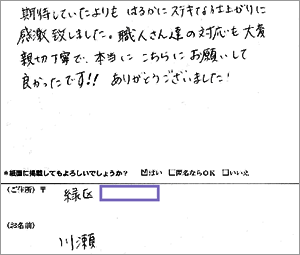 期待していたよりも はるかにステキな仕上がりに
感激致しました。職人さん達の対応も大変
親切丁寧で、本当に こちらにお願いして
良かったです!! ありがとうございました!
*紙面に掲載してもよろしいでしょうか? ☑はい □匿名ならOK □いいえ
(ご住所) 〒
緑区
(お名前)
川瀬